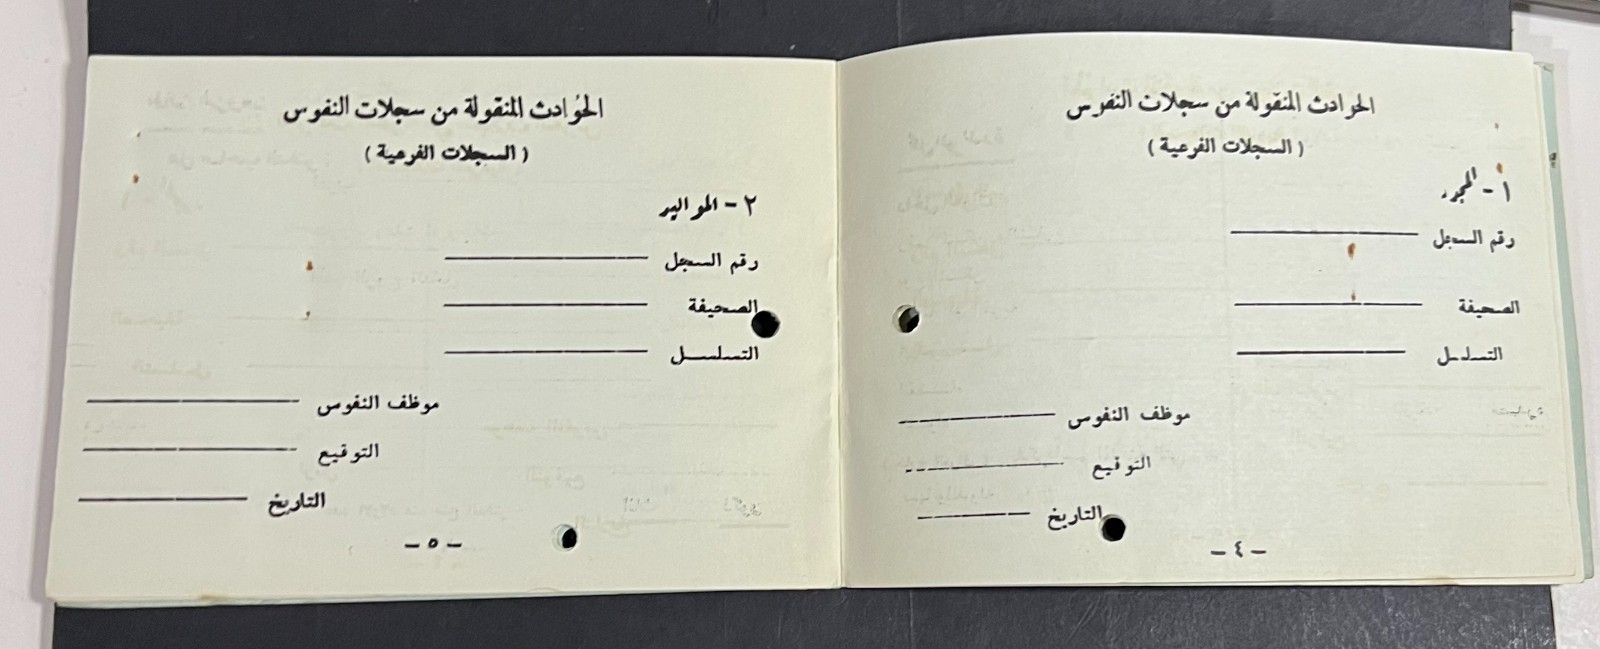 الحوادث المنقولة من سجلات النفوس
( السجلات الفرعية )
١ -
رقم السجل
الصحيفة
التسلسل
موظف النفوس
التوقيع
التاريخ
- ٤ -
الحوادث المنقولة من سجلات النفوس
( السجلات الفرعية )
٢ - المواليد
رقم السجل
الصحيفة
التسلسل
موظف النفوس
التوقيع
التاريخ
- ٥ -